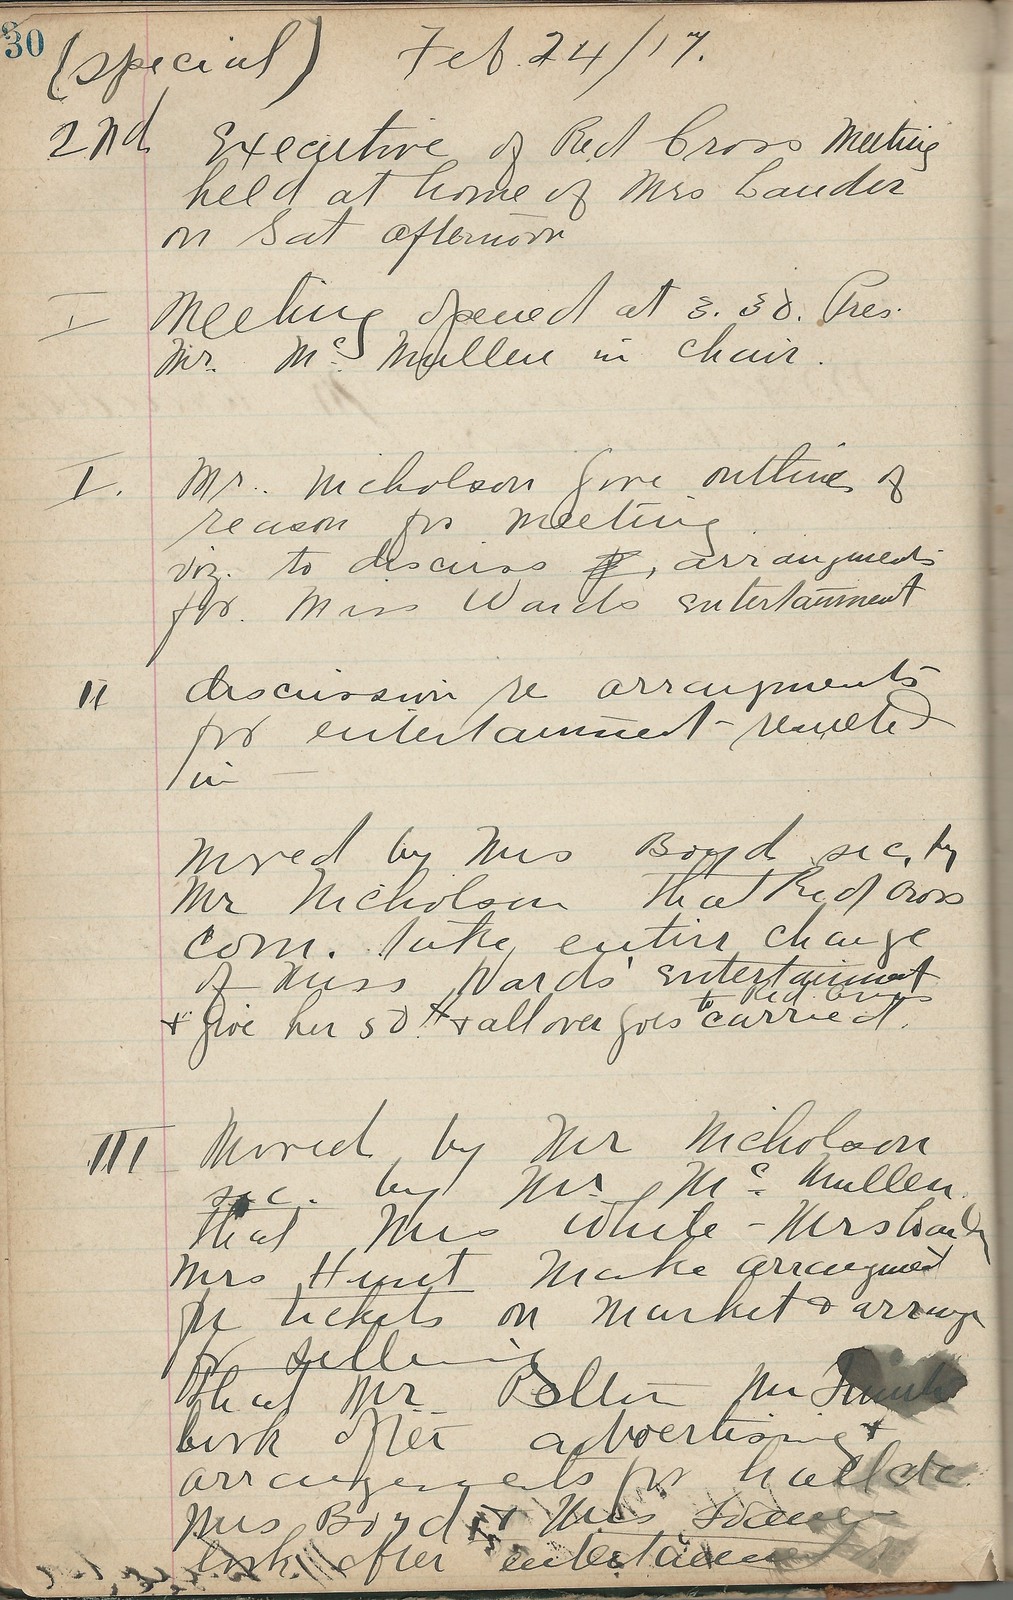 30
(special) Feb. 24/17.
2nd Executive of Red Cross Meeting
held at home of Mrs Lauder
on Sat afternoon
I Meeting opened at 3.30. Pres.
Mr. Mc Mullen in chair.
I. Mr. Nicholson gave outline of
reason for meeting
viz. to discuss arrangments
for Miss Wards entertainment
II discussion re arrangments
for entertainment resulted
in —
moved by Mrs Boyd sec. by
Mr Nicholson that Red Cross
com. take entire charge
of Miss Wards' entertainment
to Red Cross
+ give her 50 + all over goes carried.
III Moved by Mr Nicholson
sec. by Mr Mc Mullen
that Mrs White - Mrs
Mrs Hunt make arrangment
for tickets on market & arrange
for selling
that Mr. Mr
look after advertising +
arrangements for hall etc
Mrs Boyd + Mrs
look after entertainment